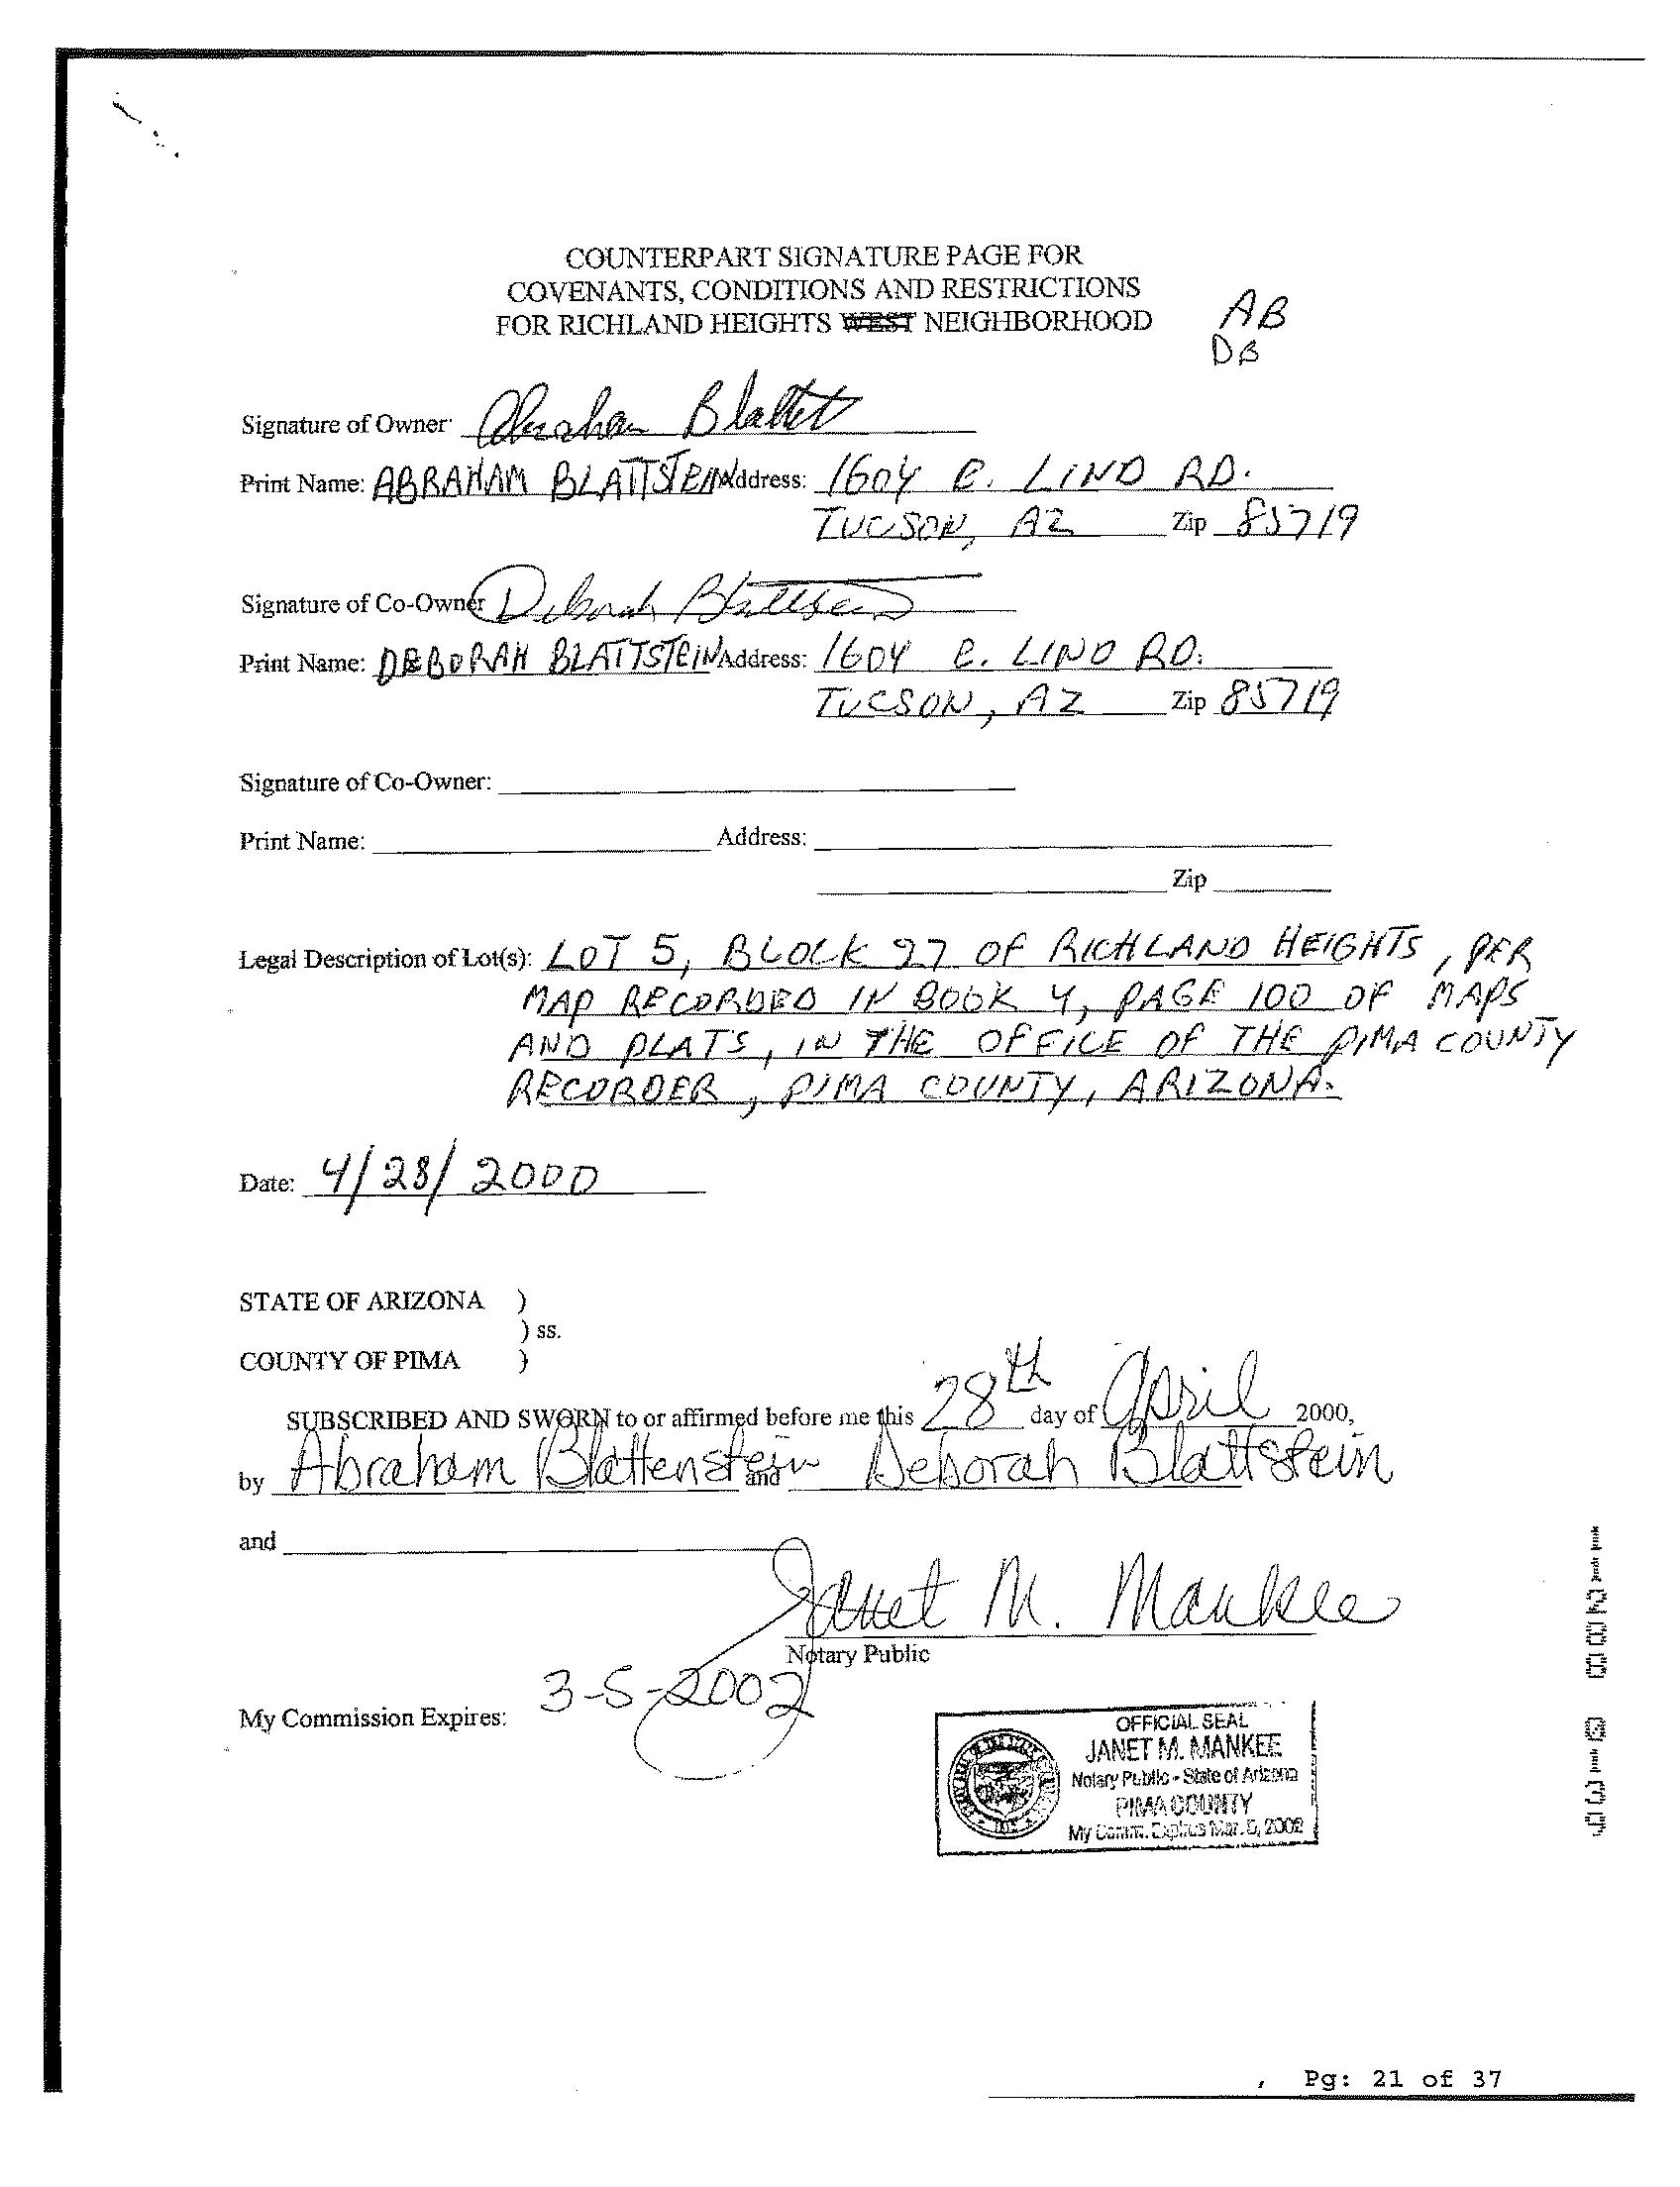 COUNTERPART SIGNATURE PAGE FOR
COVENANTS, CONDITIONS AND RESTRICTIONS
FOR RICHLAND HEIGHTS WEST NEIGHBORHOOD
AB
DB
Signature of Owner: Abraham Blattst
Print Name: ABRAHAM BLATTSTEIN Address: 1604 E. LIND RD.
TUCSON, AZ Zip 85719
Signature of Co-Owner Deborah Blattstein
Print Name: DEBORAH BLATTSTEIN Address: 1604 E. LIND RD.
TUCSON, AZ Zip 85719
Signature of Co-Owner:
Print Name: Address:
Zip
Legal Description of Lot(s): LOT 5, BLOCK 27 OF RICHLAND HEIGHTS, PER
MAP RECORDED IN BOOK 4, PAGE 100 OF MAPS
AND PLATS, IN THE OFFICE OF THE PIMA COUNTY
RECORDER, PIMA COUNTY, ARIZONA.
Date: 4/28/2000
STATE OF ARIZONA )
) ss.
COUNTY OF PIMA )
SUBSCRIBED AND SWORN to or affirmed before me this 28th day of April 2000,
by Abraham Blattenstein and Deborah Blattstein
and
Janet M. Mankee
Notary Public
My Commission Expires: 3-5-2002
OFFICIAL SEAL
JANET M. MANKEE
Notary Public - State of Arizona
PIMA COUNTY
My Comm. Expires Mar. 5, 2002
, Pg: 21 of 37